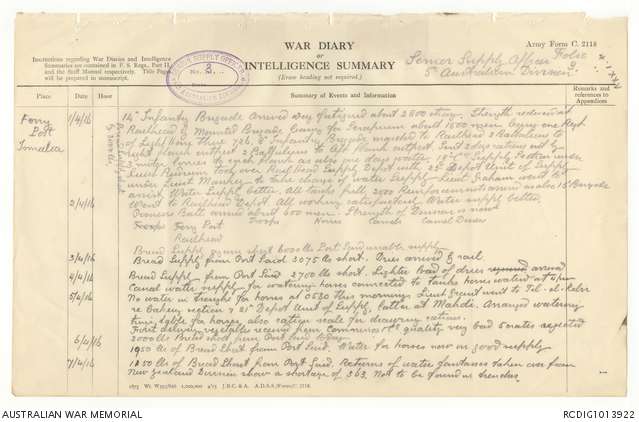 WAR DIARY
or
INTELLIGENCE SUMMARY
(Erase heading not required.)
Army Form C. 2118
Instructions regarding War Diaries and Intelligence
Summaries are contained in F. S. Regs., Part II.
and the Staff Manual respectively. Title Pages
will be prepared in manuscript.
Senior Supply Officer
5th Australian Division
Place
Date
Hour
Summary of Events and Information
Remarks and references to Appendices
Ferry Post Ismailia
1/4/16
14th Infantry Brigade arrived very fatigued about 2800 strong. Strength reduced at
Railhead by Mounted Brigade leaving for Serapeum about 1500 men leaving one Regt
of Light Horse there 726. 8th Infantry Brigade marched to Railhead 2 Battalions to
right flank other 2 Battalions to left flank outpost. Sent 2 days rations out by
3 miles to each flank as also one days water. 18th Supply Section under
Lieut took over Railhead Supply Depot with 2nd Depot Unit of Supply
under Lieut Manley to take charge of water supply. Lieut Graham went to
assist. Water Supply better. All tanks full. 2000 Reinforcements arrived as also 15th Brigade
2/4/16
Went to Railhead Depot. All working satisfactorily. Water supply better.
Pioneers Batt arrived about 600 men. Strength of Division is now
Troops Ferry Post Troops Horses Camels Canal Duties
Railhead
Bread Supply again short 6000 lbs Port Said unable supply
3/4/16
Bread Supply from Port Said 3075 lbs short. Dries arrived by rail
4/4/16
Bread Supply from Port Said 2700 lbs short. Lighter load of dries arrived
Canal water supply for watering horses connected to tanks horses watered at 5 pm
5/4/16
No water in troughs for horses at 0530 this morning. Lieut went to Tel-el-Kebir
re Bakery section & 21st Depot Unit of Supply, latter at Mahdi. Arranged watering
time table for horses, also ration scale for drawing rations.
First delivery vegetables received from contractors quality very bad 5 crates rejected
2000 lbs Bread short from Port Said today
6/4/16
1950 lbs of Bread short from Port Said. Water for horses now in good supply
7/4/16
1850 lbs of Bread short from Port Said. Returns of water fantasses taken over from
New Zealand Division show a shortage of 363. Not to be found in trenches.
AUSTRALIAN WAR MEMORIAL
RCDIG1013922